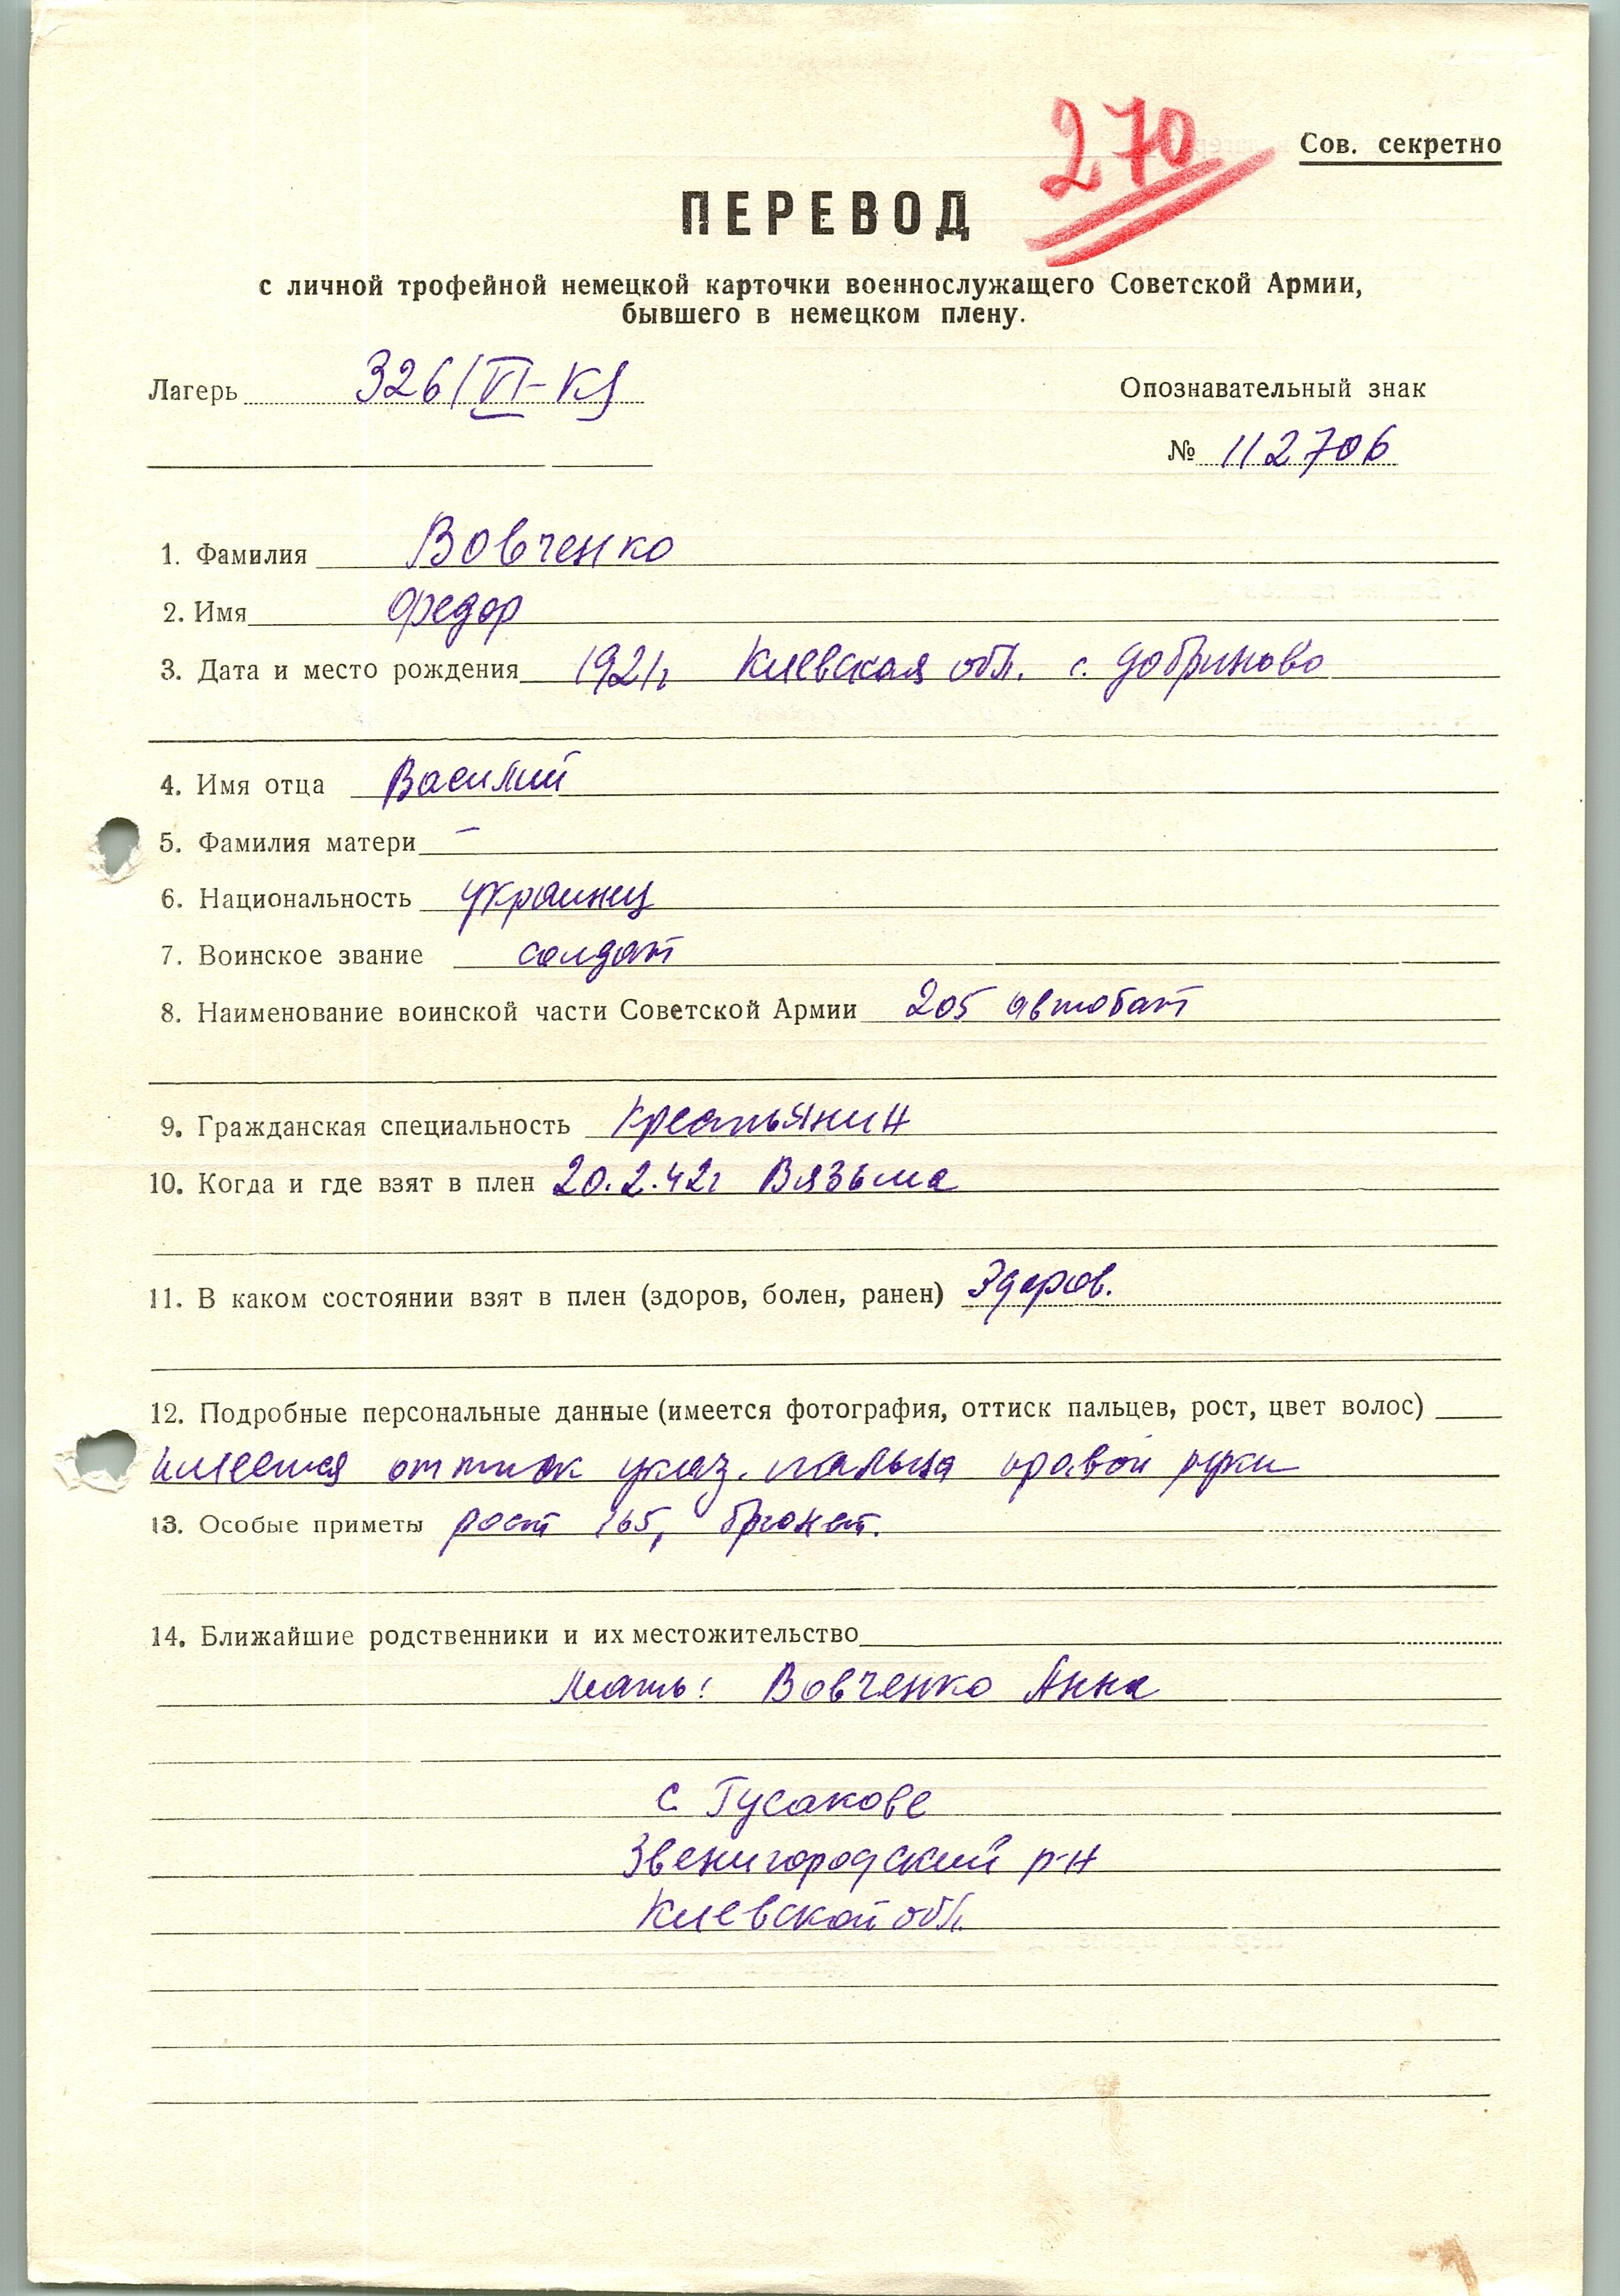 270
Сов. секретно
ПЕРЕВОД
с личной трофейной немецкой карточки военнослужащего Советской Армии,
бывшего в немецком плену.
Лагерь 326/VI-К
Опознавательный знак
№ 112706
1. Фамилия Вовченко
2. Имя Федор
3. Дата и место рождения 1921г Киевская обл. с. Добриново
4. Имя отца Василий
5. Фамилия матери –
6. Национальность украинец
7. Воинское звание солдат
8. Наименование воинской части Советской Армии 205 автобат
9. Гражданская специальность Крестьянин
10. Когда и где взят в плен 20.2.42г Вязьма
11. В каком состоянии взят в плен (здоров, болен, ранен) Здоров.
12. Подробные персональные данные (имеется фотография, оттиск пальцев, рост, цвет волос)
имеется оттиск указ. пальца правой руки
13. Особые приметы рост 165, брюнет.
14. Ближайшие родственники и их местожительство
Мать: Вовченко Анна
с. Гусакове
Звенигородский р-н
Киевской обл.